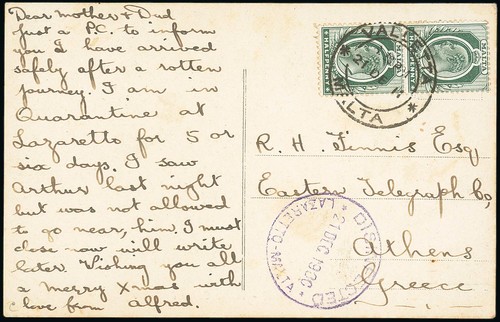 Dear mother & Dad
Just a P.C. to inform
you I have arrived
safely after a rotten
journey. I am in
Quarantine at
Lazaretto for 5 or
six days. I saw
Arthur last night
but was not allowed
to go near, him. I must
close now will write
later. Wishing you all
a merry Xmas with
love from Alfred.
MALTA
HALFPENNY
MALTA
HALFPENNY
VALLETTA
MALTA
R. H. Finnis Esq.
Eastern Telegraph Co,
Athens
Greece
DISINFECTED
21 DEC 1900
LAZARETTO-MALTA